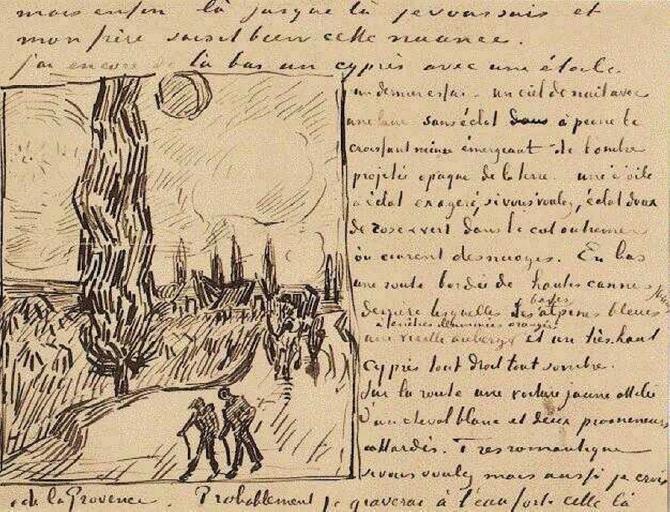 mais enfin là jusque là je voussais et
mon père saisit bien cette nuance.
j'ai encore de là bas un cyprès avec une étoile
un dernier essai - un ciel de nuit avec
une lune sans éclat dans à peine le
croissant mince émergeant de l'ombre
projetée opaque de la terre. une étoile
à éclat exageré, si vous voulez, éclat doux
de rose et vert dans le ciel outremer
où courent des nuages. En bas
une route bordée de hautes cannes
derrière lesquelles les basses alpines bleues
à fenêtres illuminées orangée
une vieille auberge et un très haut
cyprès tout droit tout sombre.
Sur la route une voiture jaune attelée
d'un cheval blanc et deux promeneurs
attardés. Très romantique
si vous voulez mais aussi je crois
de la Provence. Probablement je graverai à l'eau forte celle là